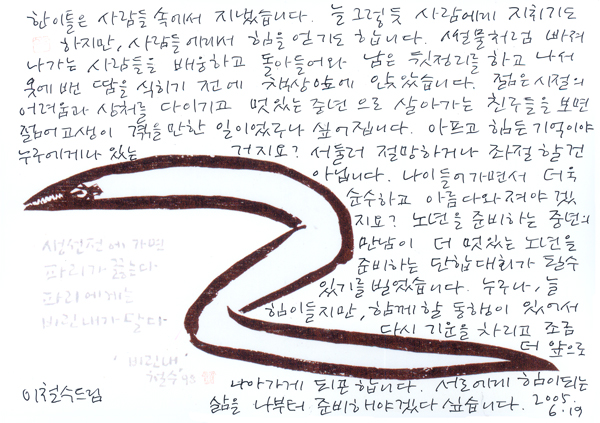 한이틀은 사람들 속에서 지냈습니다. 늘 그렇듯 사람에게 지치기도
하지만, 사람들에게서 힘을 얻기도 합니다. 썰물처럼 빠져
나가는 사람들을 배웅하고 돌아들어와 남은 뒷정리를 하고 나서
옷에 밴 땀을 식히기 전에 책상앞에 앉았습니다. 젊은 시절의
어려움과 상처를 다 이기고 멋있는 중년으로 살아가는 친구들을 보면
젊어고생이 겪을만한 일이었구나 싶어집니다. 아프고 힘든 기억이야
누구에게나 있는 거지요? 서둘러 절망하거나 좌절할건
아닙니다. 나이들어가면서 더욱
순수하고 아름다와져야 겠
지요? 노년을 준비하는 중년의
만남이 더 멋있는 노년을
준비하는 단합대회가 될수
있기를 빌었습니다. 누구나, 늘
힘이들지만, 함께할 동행이 있어서
다시 기운을 차리고 조금
더 앞으로
나아가게 되곤 합니다. 서로에게 힘이되는
삶을 나부터 준비해야겠다 싶습니다. 2005.
6.19
생선전에 가면
파리가 끓는다
파리에게는
비린내가 달다
'비린내'
철수 '95
이철수드림